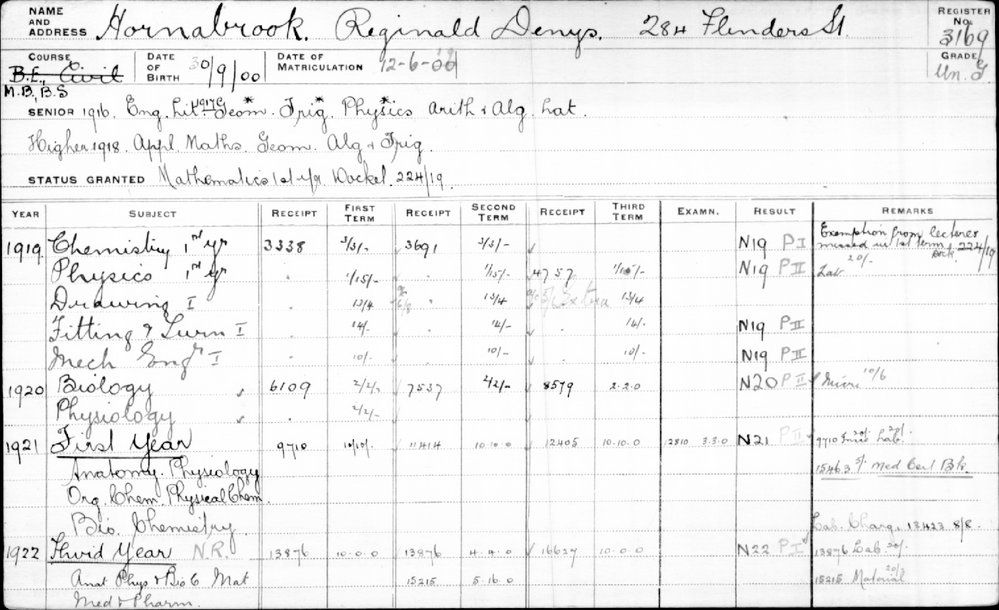 NAME AND ADDRESS Hornabrook. Reginald Denys. 284 Flinders St. REGISTER No. 3169
COURSE B.E., Civil DATE OF BIRTH 30/9/00 DATE OF MATRICULATION 12-6-00 GRADE Un. G
M.B., B.S
SENIOR 1916. Eng. Lit. 1917 Geom.* Trig.* Physics* Arith & Alg Lat.
Higher 1918. Appl Maths. Geom. Alg & Trig.
STATUS GRANTED Mathematics 1st yr. Docket. 224/19.
YEAR SUBJECT RECEIPT FIRST TERM RECEIPT SECOND TERM RECEIPT THIRD TERM EXAMN. RESULT REMARKS
1919 Chemistry 1st yr 3338 3/3/- 3691 3/3/- ✓ N19 PI Exemption from lectures missed in 1st term, Dock. 224/19
Physics 1st yr . 1/15/- . 1/15/- 4757 1/15/- N19 PII Lab 20/-
Drawing I . 13/4 . 13/4 Extra 13/4
Fitting & Turn I . 14/- . 14/- . 14/- N19 PII
Mech Engr I . 10/- . 10/- . 10/- N19 PII
1920 Biology ✓ 6109 2/2/- 7537 42/- 8579 2.2.0 N20 PII 10/6
Physiology ✓ . 2/2/-
1921 First Year 9710 10/10/- 11414 10.10.0 12405 10.10.0 12810 3.3.0 N21 PII 9710 Lab. 20/-
Anatomy. Physiology 15463 5/- Med Cert Bk.
Org. Chem. Physical Chem.
Bio. Chemistry. Lab. Charge 13423 8/8
1922 Third Year N.R. 13876 10.0.0 13876 4.4.0 16627 10.0.0 N22 PI 13876 Lab 20/-
Anat Phys & Bio C Mat 15215 5.16.0 15215 Material 20/-
Med & Pharm.